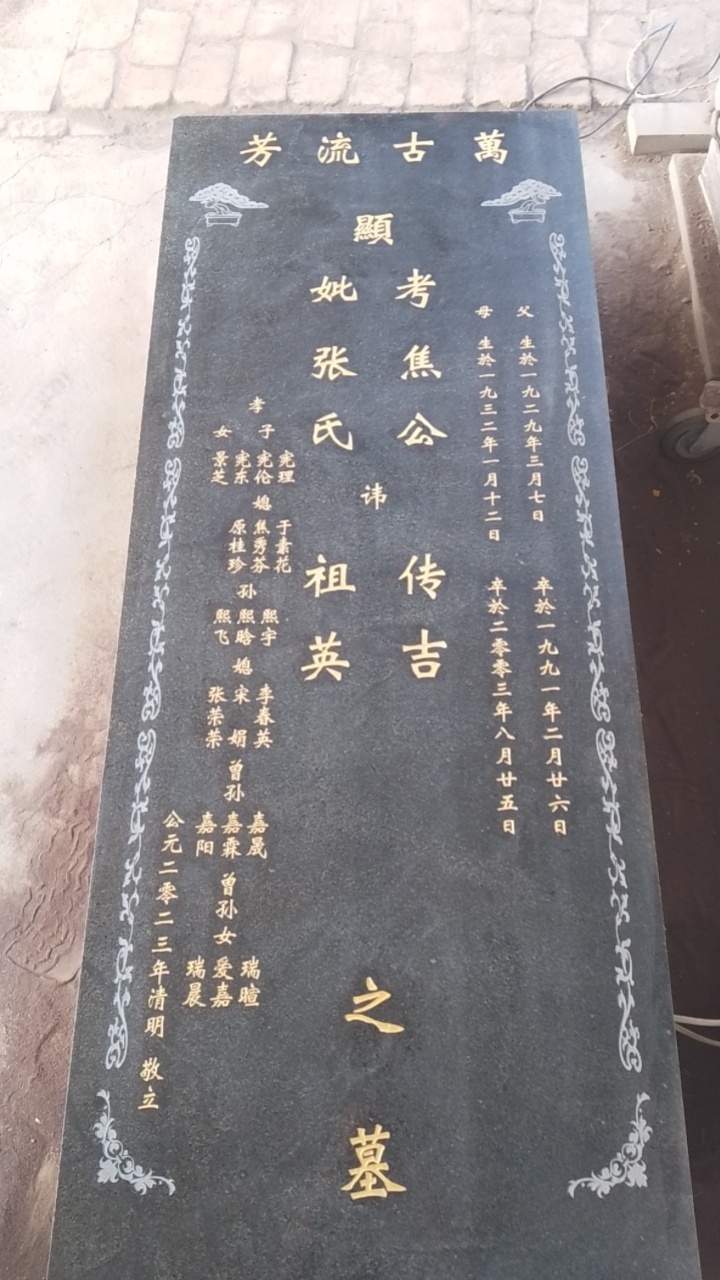 萬古流芳
父 生於一九二九年三月七日 卒於一九九一年二月廿六日
母 生於一九三二年一月十二日 卒於二零零三年八月廿五日
顯
考焦公 传吉
妣张氏 祖英
讳
之墓
孝
子 宪理 宪伦 宪东
女 景芝
媳 于素花 焦秀芬 原桂珍
孙 熙宇 熙晗 熙飞
媳 李春英 宋娟 张荣荣
曾孙 嘉晟 嘉霖 嘉阳
曾孙女 瑞暄 爱嘉 瑞晨
公元二零二三年清明 敬立